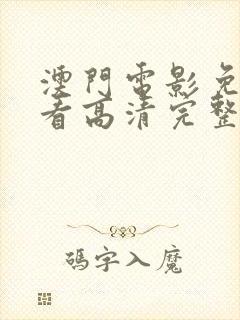 澳門電影免
看高清完整
碼字入魔